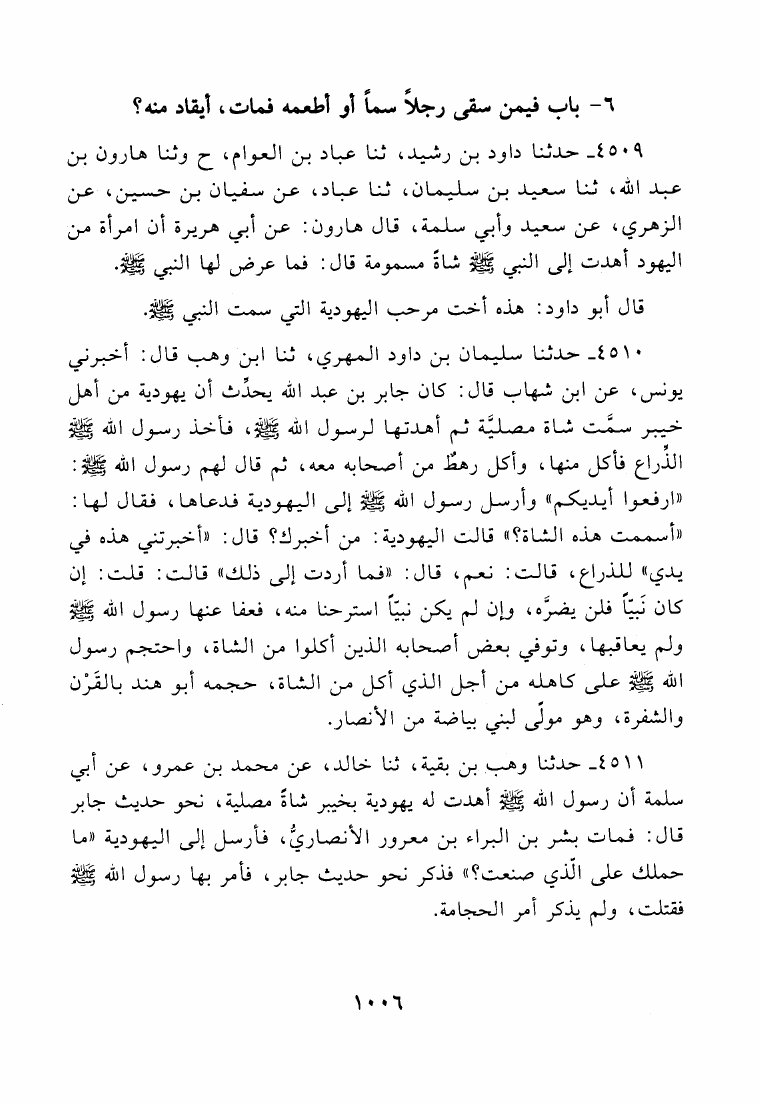 ٦- باب فيمن سقى رجلاً سماً أو أطعمه فمات، أيقاد منه؟
٤٥٠٩ـ حدثنا داود بن رشيد، ثنا عباد بن العوام، ح وثنا هارون بن
عبد الله، ثنا سعيد بن سليمان، ثنا عباد، عن سفيان بن حسين، عن
الزهري، عن سعيد وأبي سلمة، قال هارون: عن أبي هريرة أن امرأة من
اليهود أهدت إلى النبي ﷺ شاةً مسمومة قال: فما عرض لها النبي ﷺ.
قال أبو داود: هذه أخت مرحب اليهودية التي سمت النبي ﷺ.
٤٥١٠ـ حدثنا سليمان بن داود المهري، ثنا ابن وهب قال: أخبرني
يونس، عن ابن شهاب قال: كان جابر بن عبد الله يحدِّث أن يهودية من أهل
خيبر سمَّت شاة مصليَّة ثم أهدتها لرسول الله ﷺ، فأخذ رسول الله ﷺ
الذِّراع فأكل منها، وأكل رهطٌ من أصحابه معه، ثم قال لهم رسول الله ﷺ:
«ارفعوا أيديكم» وأرسل رسول الله ﷺ إلى اليهودية فدعاها، فقال لها:
«أسممت هذه الشاة؟» قالت اليهودية: من أخبرك؟ قال: «أخبرتني هذه في
يدي» للذراع، قالت: نعم، قال: «فما أردت إلى ذلك» قالت: قلت: إن
كان نَبيّاً فلن يضرَّه، وإن لم يكن نبيّاً استرحنا منه، فعفا عنها رسول الله ﷺ
ولم يعاقبها، وتوفي بعض أصحابه الذين أكلوا من الشاة، واحتجم رسول
الله ﷺ على كاهله من أجل الذي أكل من الشاة، حجمه أبو هند بالقَرْن
والشفرة، وهو مولًى لبني بياضة من الأنصار.
٤٥١١ـ حدثنا وهب بن بقية، ثنا خالد، عن محمد بن عمرو، عن أبي
سلمة أن رسول الله ﷺ أهدت له يهودية بخيبر شاةً مصلية، نحو حديث جابر
قال: فمات بشر بن البراء بن معرور الأنصاريُّ، فأرسل إلى اليهودية «ما
حملك على الّذي صنعت؟» فذكر نحو حديث جابر، فأمر بها رسول الله ﷺ
فقتلت، ولم يذكر أمر الحجامة.
١٠٠٦